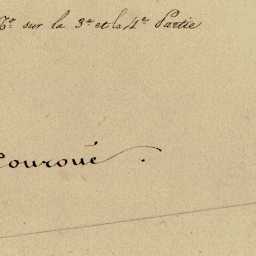 sur la 3.e et la 4.e Partie
Couroué.